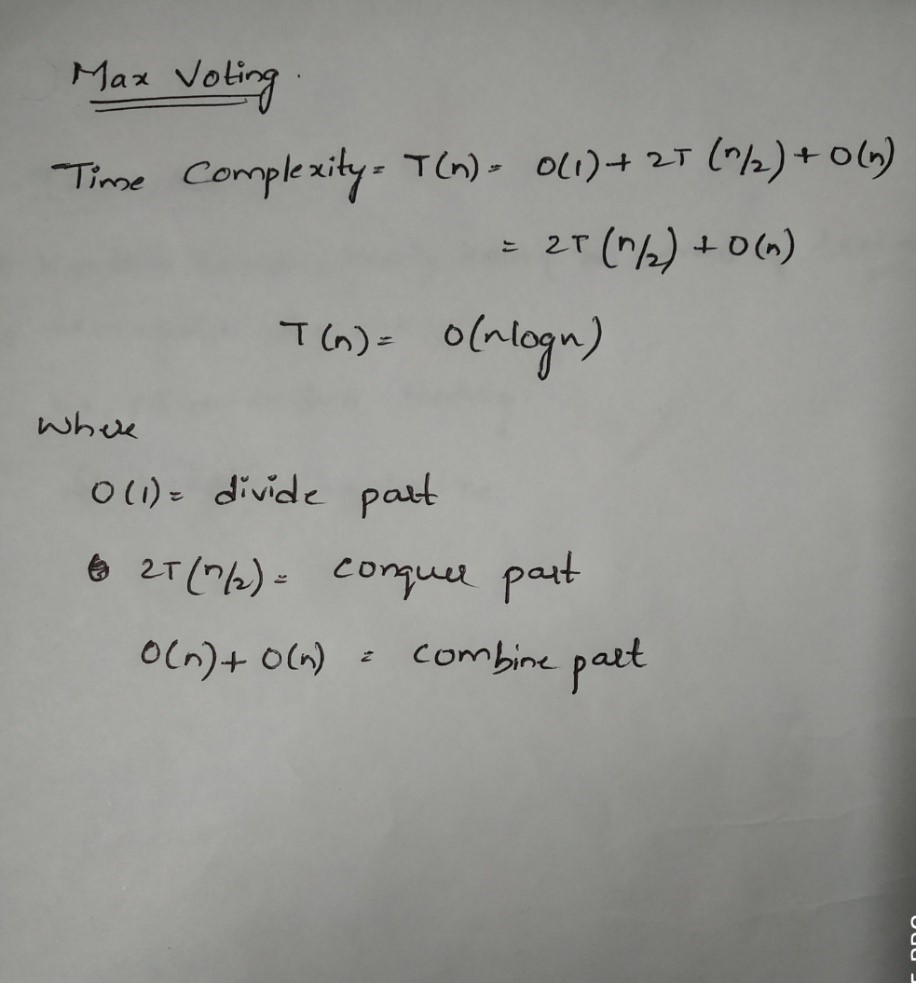 Max Voting.
Time Complexity = T(n) = O(1) + 2T (n/2) + O(n)
= 2T (n/2) + O(n)
T(n) = O(nlogn)
where
O(1) = divide part
2T(n/2) = conquer part
O(n) + O(n) = combine part